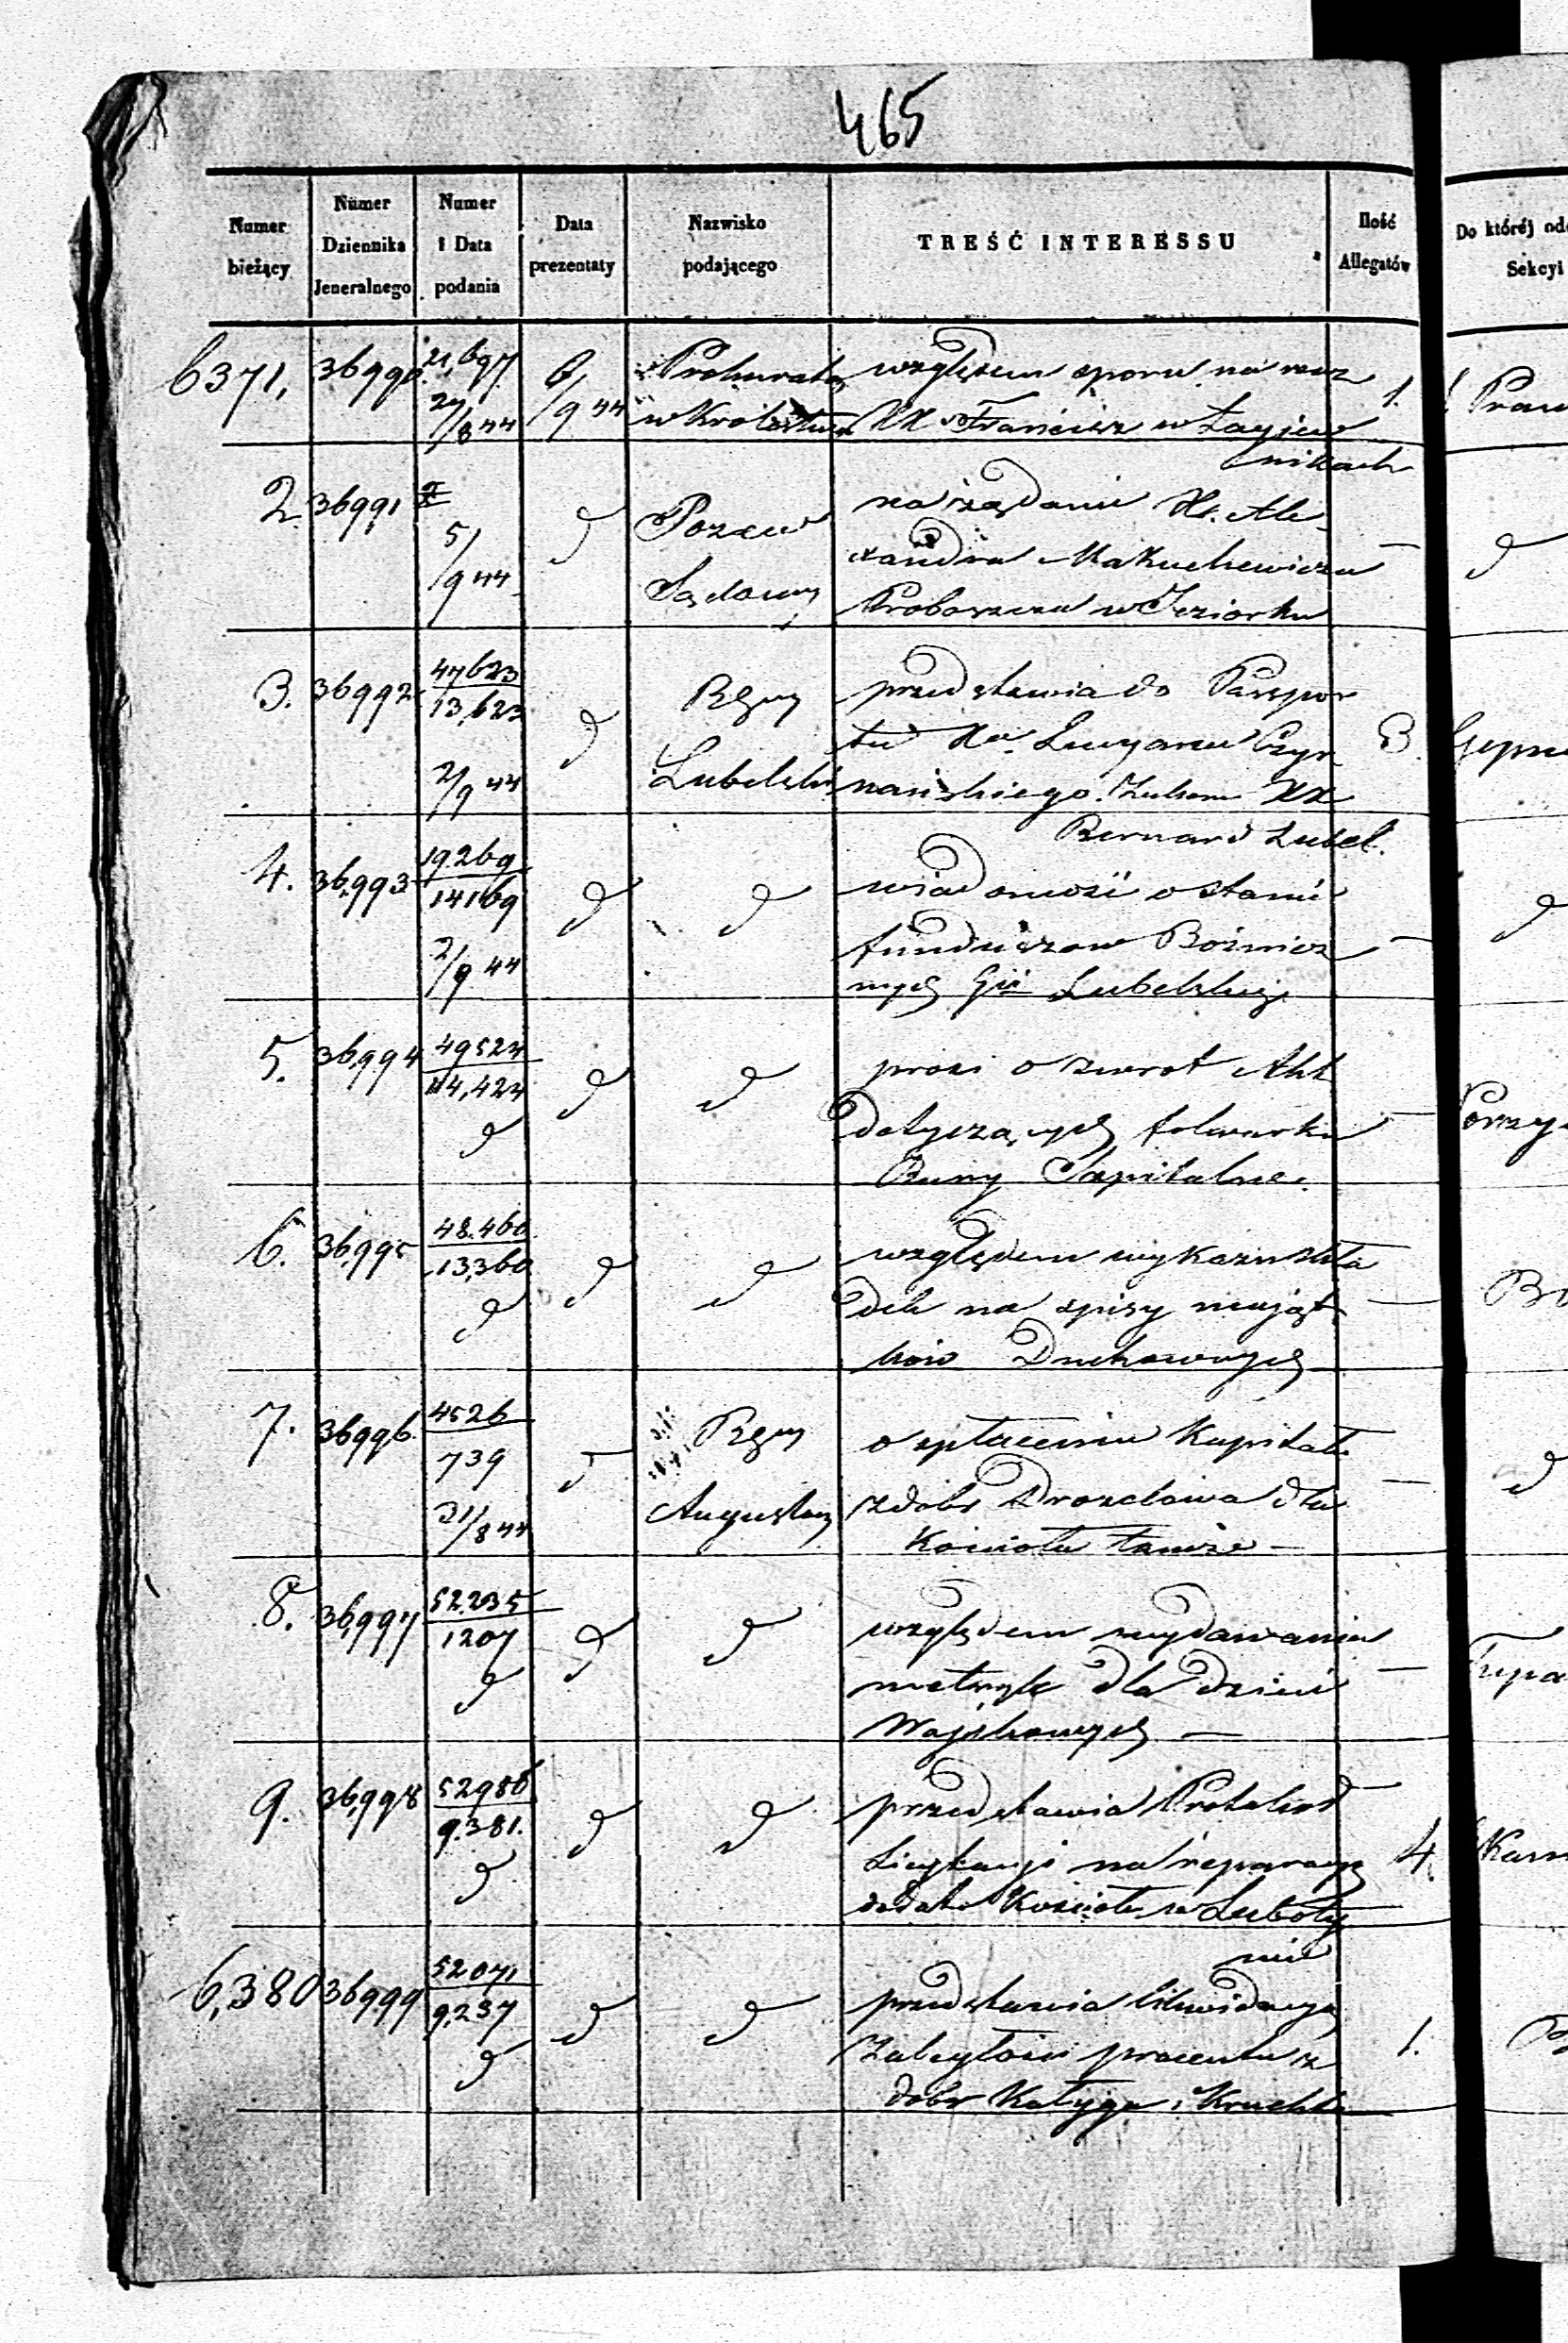 465
Numer bieżący | Numer Dziennika Jeneralnego | Numer i Data podania | Data prezentaty | Nazwisko podającego | TREŚĆ INTERESSU | Ilość Allegatów | Do któréj od Sekcyi
6371. | 36990. | 21,697 27/8 44 | 6/9 44 | Prokurator w Królestwie | względem sporu na rzecz | 1. | Praw
XX Franciszk w Łagiew
nikach
2. | 36991 | 5/9 44 | d | Pozew Sądowy | na żądanie Xa. Ale- | — | d
xandra Makuchewicza
Proboszcza w Jeziorku
3. | 36992 | 47623 13,623 2/9 44 | d | RGuy Lubelski | przedstawia do Paszpor | 3.
tu Xa. Lucyana Czyr
nańskiego Zakonu XX
Bernard Lubel.
4. | 36,993 | 19.269 14169 2/9 44 | d | d | wiadomość o stanie | — | d
funduszow Bożnicz
nych Gii Lubelskiej
5. | 36,994 | 49524 14,424 d | d | d | prosi o zwrot Akt | —
dotyczących folwarku
Szpitalne.
6. | 36,995 | 48.460 13,360 d | d | d | względem wykazu skła | —
dek na spisy mająt
ków Duchownych
7. | 36996. | 4526 739 31/8 44 | d | RGuy Augustow | o spłaceniu Kapitału | — | d
z dobr Drozdowa dla
Kościoła tamże —
8. | 36,997 | 52.235 1207 d | d | d | względem wydawania | —
metryk dla dzieci
Wojskowych —
9. | 36,998 | 52986 9.381. d | d | d | przedstawia Protokoł | 4.
Licytacyi na reparacyą
Kościoła w Luboty
nie
6,380 | 36,999 | 52071 9,237 d | d | d | przedstawia likwidacyą | 1.
zaległości procentu z
dobr Kołyga i